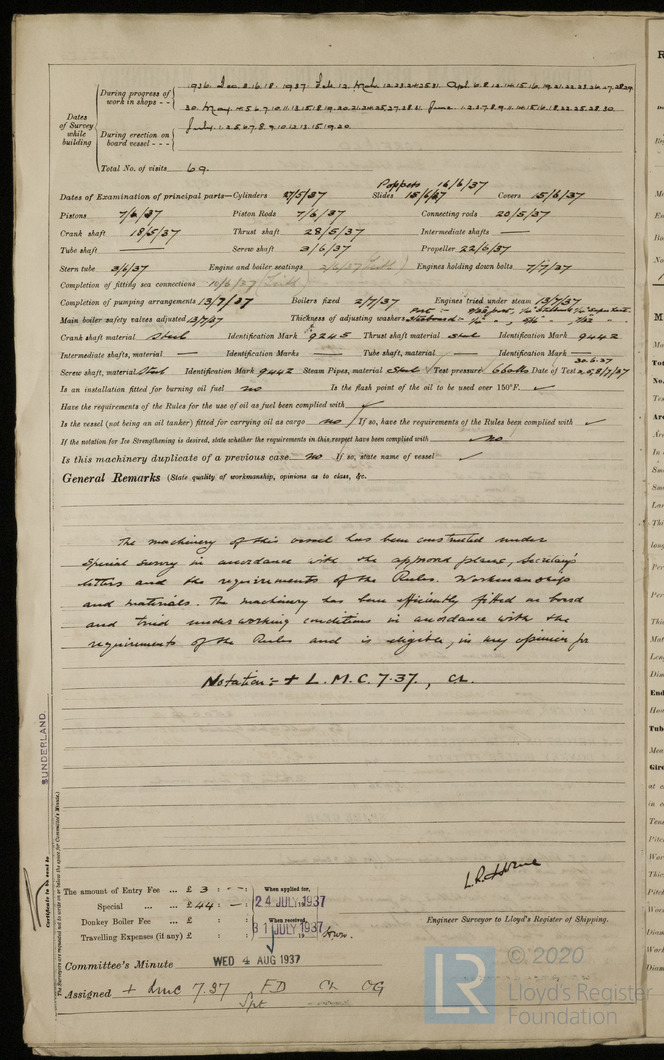 Dates of Survey while building
During progress of work in shops - -
1936. Dec. 8.16.18. 1937. Feb 12. Mch. 12.23.24.25.31. Apl 6.8.12.14.15.16.19.21.22.23.26.27.28.29.
30. May 4.5.6.7.10.11.13.15.18.19.20.21.24.25.27.28.31. June 1.2.3.7.8.9.11.14.15.16.18.22.25.28.30.
During erection on board vessel - - -
July 1.2.5.6.7.8.9.10.12.13.15.19.20.
Total No. of visits 69.
Poppets 16/6/37
Dates of Examination of principal parts—Cylinders 27/5/37 Slides 15/6/37 Covers 15/6/37
Pistons 7/6/37 Piston Rods 7/6/37 Connecting rods 20/5/37
Crank shaft 18/5/37 Thrust shaft 28/5/37 Intermediate shafts —
Tube shaft — Screw shaft 3/6/37 Propeller 22/6/37
Stern tube 3/6/37 Engine and boiler seatings 2/6/37 (Leith) Engines holding down bolts 7/7/37
Completion of fitting sea connections 10/6/37 (Leith)
Completion of pumping arrangements 13/7/37 Boilers fixed 2/7/37 Engines tried under steam 13/7/37
Main boiler safety valves adjusted 13/7/37 Thickness of adjusting washers Port :-
Crank shaft material Steel Identification Mark 9245 Thrust shaft material Steel Identification Mark 9442
Intermediate shafts, material — Identification Marks — Tube shaft, material — Identification Mark —
30.6.37
Screw shaft, material Steel Identification Mark 9442 Steam Pipes, material Steel Test pressure 660 lbs Date of Test 2,5,8/7/37
Is an installation fitted for burning oil fuel no Is the flash point of the oil to be used over 150°F. ✓
Have the requirements of the Rules for the use of oil as fuel been complied with ✓
Is the vessel (not being an oil tanker) fitted for carrying oil as cargo no If so, have the requirements of the Rules been complied with ✓
If the notation for Ice Strengthening is desired, state whether the requirements in this respect have been complied with no
Is this machinery duplicate of a previous case no If so, state name of vessel ✓
General Remarks (State quality of workmanship, opinions as to class, &c.
The machinery of this vessel has been constructed under
special survey in accordance with the approved plans, Secretary's
letters and the requirements of the Rules. Workmanship
and materials. The machinery has been efficiently fitted on board
and tried under working conditions in accordance with the
requirements of the Rules and is eligible, in my opinion for
Notation:- + L.M.C. 7-37., CL.
SUNDERLAND.
Certificate to be sent to
(The Surveyors are requested not to write on or below the space for Committee's Minute.)
The amount of Entry Fee ... £ 3 : - : When applied for,
Special ... ... £ 44 : - : 24 JULY 1937
Donkey Boiler Fee ... £ : : When received,
Travelling Expenses (if any) £ : : 31 JULY 1937
Engineer Surveyor to Lloyd's Register of Shipping.
Committee's Minute WED 4 AUG 1937
Assigned + LMC 7.37 FD CL OG
Spt
© 2020
LR
Lloyd's Register
Foundation